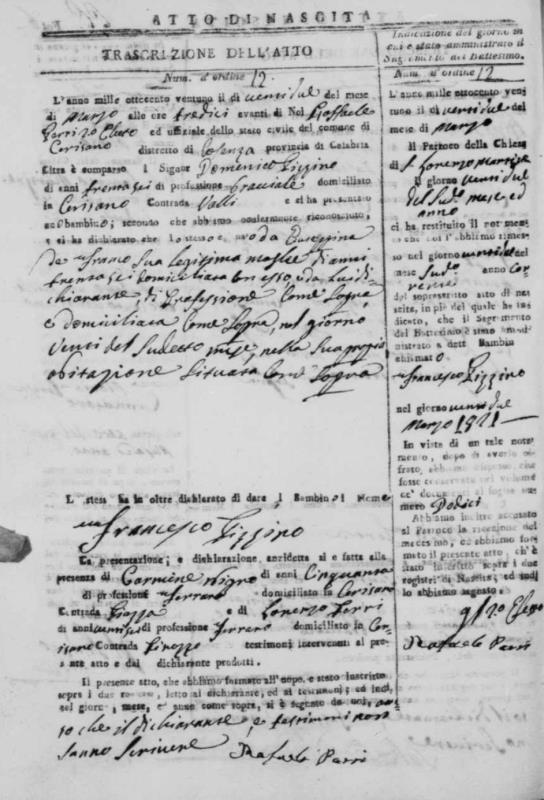 ATTO DI NASCITA
TRASCRIZIONE DELL'ATTO
Num. d'ordine 12.
L'anno mille ottocento ventuno il dì ventidue del mese
di Marzo alle ore tredici avanti di Noi Raffaele
Eletto ed uffiziale dello stato civile del comune di
Cerisano distretto di Cosenza provincia di Calabria
Citra è comparso il Signor Domenico Zizzino
di anni trentasei di professione Bracciale domiciliato
in Cerisano Contrada Valli e ci ha presentato
un bambino; secondo che abbiamo ocularmente riconosciuto,
e ci ha dichiarato che lo stesso è nato da
sua legittima moglie di anni
trentasei domiciliata con esso, e da lui di-
chiarante di Professione Come Sopra
e domiciliata Come Sopra, nel giorno
venti del sudetto mese, nella sua propria
abitazione situata Come Sopra
L' stess ha in oltre dichiarato di dare l Bambin i Nome
Francesco Zizzino
La presentazione, e dichiarazione anzidetta si è fatta alla
presenza di Carmine Nigro di anni Cinquanta
di professione Ferraro domiciliato in Cerisano
Contrada Piazza e di Lorenzo Ferri
di anni di professione Ferraro domiciliato in Ce-
risano Contrada testimonj intervenuti al pre-
sente atto e dal dichiarante prodotti.
Il presente atto, che abbiamo formato all'uopo, è stato inscritto
sopra i due registri, letto al dichiarante, ed ai testimonj; ed indi,
nel giorno, mese, e anno come sopra, si è segnato da noi,
che il dichiarante, e testimoni non
sanno scrivere
Rafaele Parri
Indicazione del giorno in
cui è stato amministrato il
Sagramento del Battesimo.
Num. d'ordine 12
L'anno mille ottocento ven-
tuno il dì ventidue del
mese di Marzo
Il Parroco della Chiesa
di S. Lorenzo Martire
Il giorno ventidue
del Sud.o mese, ed
anno
ci ha restituito il not men-
to che noi l'abbiamo rimes-
so nel giorno ventidue del
mese Sud.o anno Cor-
rente
del soprascritto atto di na-
scita, in piè del quale ha in-
dicato, che il Sagramento
del Battesimo è stato ammi-
nistrato a dett Bambin
chiamato
Francesco Zizzino
nel giorno ventidue
Marzo 1821
In vista di un tale nota-
mento, dopo di averlo ci-
frato, abbiamo disposto, che
fosse conservato nel volume
de' documenti al foglio nu-
mero Dodici
Abbiamo inoltre accusato
al Parroco la ricezione del
medesimo, ed abbiamo for-
mato il presente atto, ch'è
stato inscritto sopra i due
registri di Nascita, ed indi
lo abbiamo segnato.
Rafaele Parri